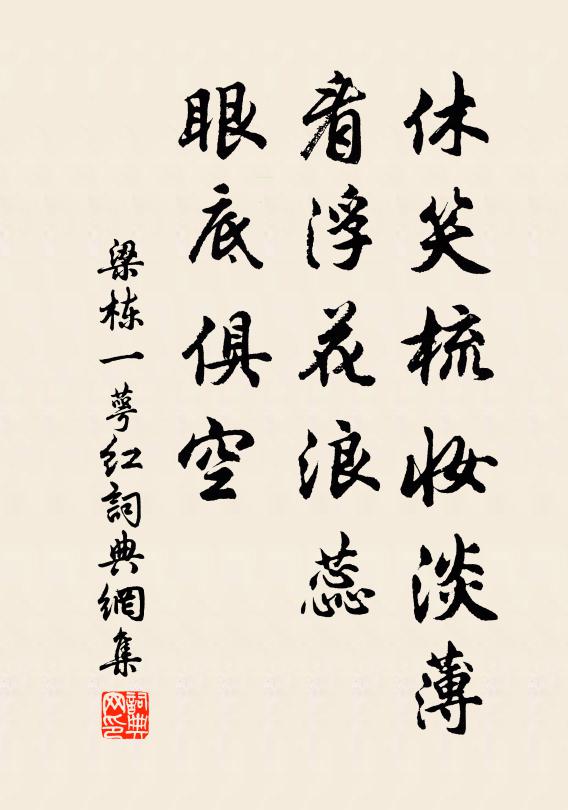 休笑梳妆淡薄
看浮花浪蕊
眼底俱空
梁栋一萼红詞典網集
詞典网印